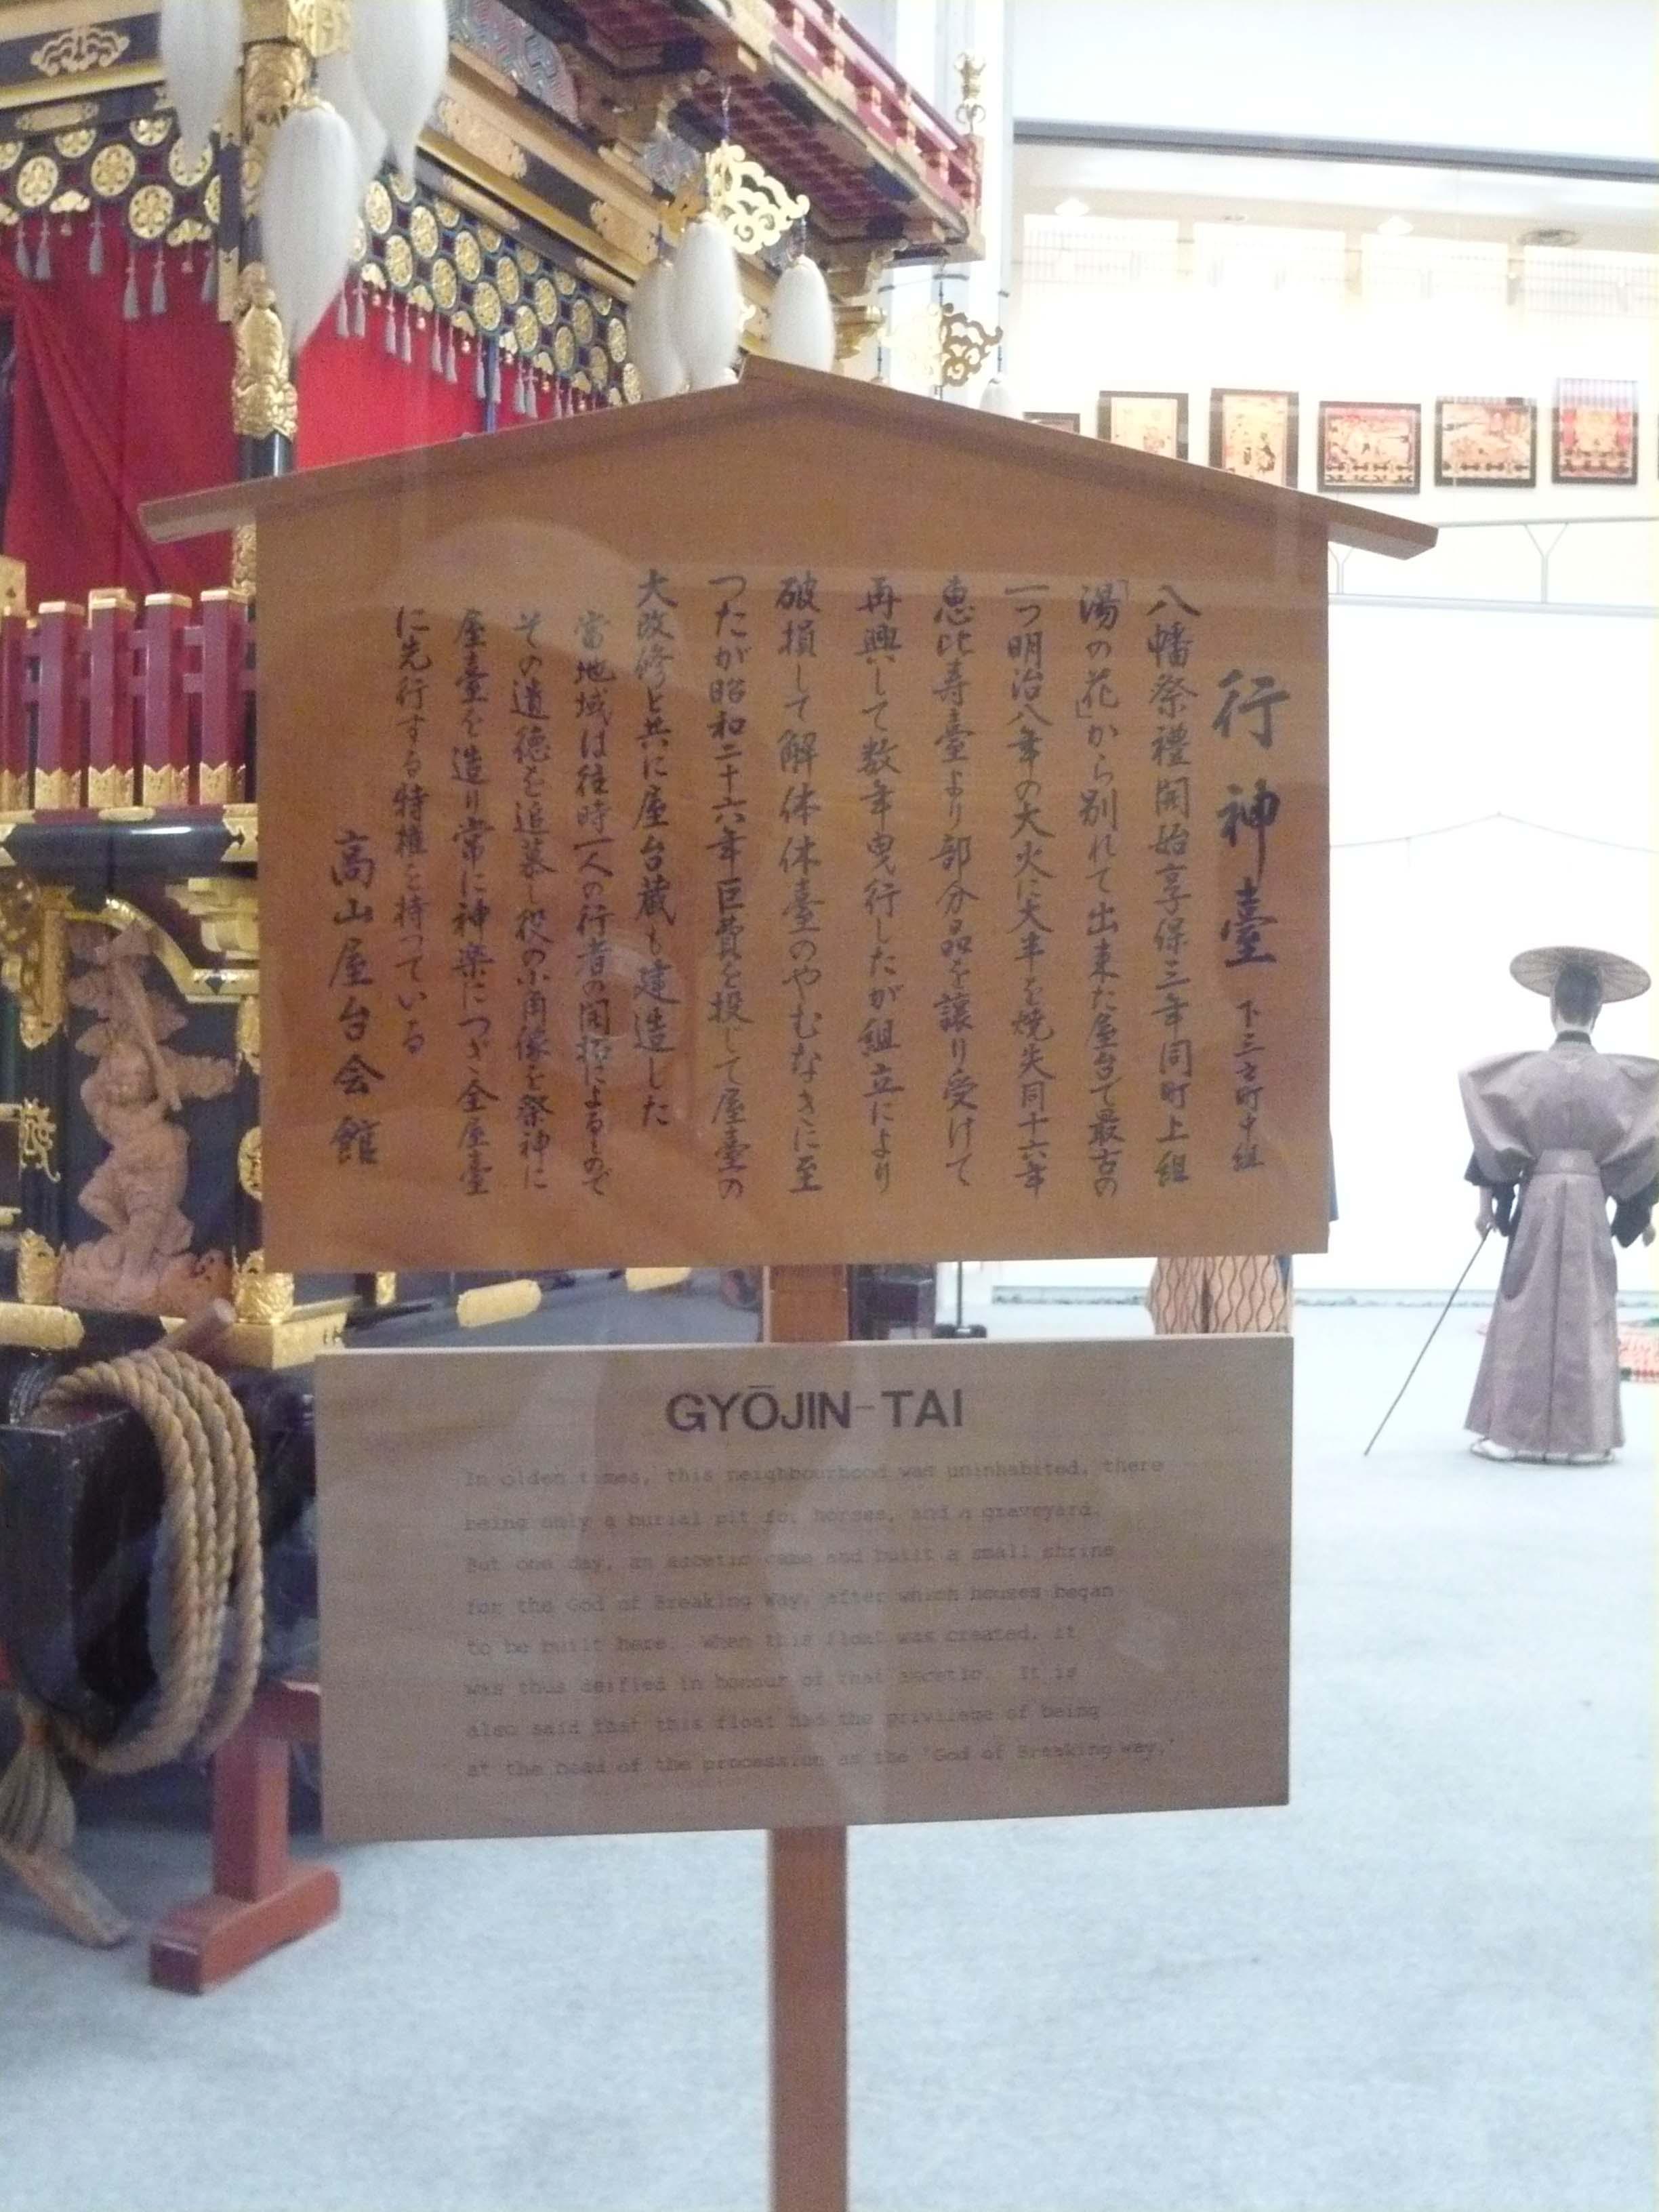 行神臺 下三之町中組
八幡祭禮開始享保三年同町上組
「湯の花」から別れて出来た屋台で最古の
一つ明治八年の大火に大半を焼失同十六年
恵比寿臺より部分品を譲り受けて
再興して数年曳行したが組立により
破損して解体休臺のやむなきに至
つたが昭和二十六年巨費を投して屋臺の
大改修と共に屋台蔵も建造した
當地域は往時一人の行者の開拓によるので
その遺徳を追慕し役の小角像を祭神に
屋臺を造り常に神楽につぎ全屋臺
に先行する特権を持つている
高山屋台会館
GYŌJIN-TAI
In olden times, this neighbourhood was uninhabited, there
being only a burial pit for horses, and a graveyard.
But one day, an ascetic came and built a small shrine
for the God of Breaking Way, after which houses began
to be built here. When this float was created, it
was thus deified in honour of that ascetic. It is
also said that this float had the privilege of being
at the head of the procession as the 'God of Breaking Way.'